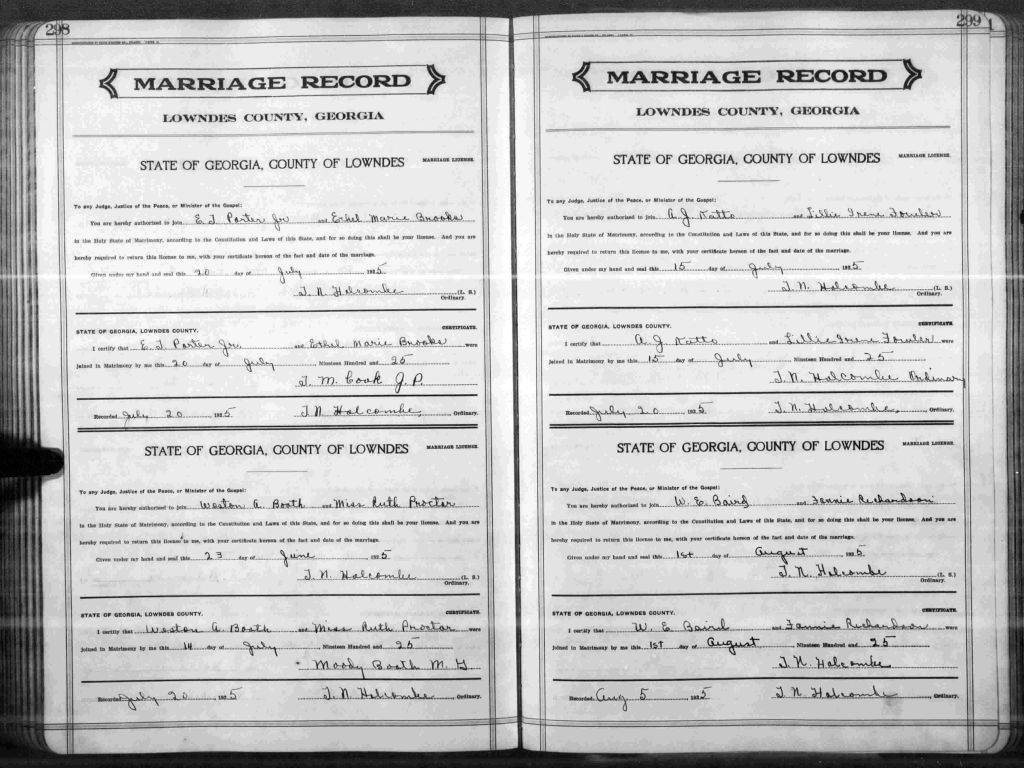 298
MARRIAGE RECORD
LOWNDES COUNTY, GEORGIA
STATE OF GEORGIA, COUNTY OF LOWNDES MARRIAGE LICENSE.
To any Judge, Justice of the Peace, or Minister of the Gospel:
You are hereby authorized to join E J Porter Jr and Ethel Marie Brooks
in the Holy State of Matrimony, according to the Constitution and Laws of this State, and for so doing this shall be your license. And you are
hereby required to return this license to me, with your certificate hereon of the fact and date of the marriage.
Given under my hand and seal this 20 day of July 1925
T. N. Holcombe (L. S.)
Ordinary.
STATE OF GEORGIA, LOWNDES COUNTY. CERTIFICATE.
I certify that E. J Porter Jr. and Ethel Marie Brooks were
joined in Matrimony by me this 20 day of July Nineteen Hundred and 25
T. M. Cook J. P.
Recorded July 20 1925 T. N. Holcombe, Ordinary.
STATE OF GEORGIA, COUNTY OF LOWNDES MARRIAGE LICENSE.
To any Judge, Justice of the Peace, or Minister of the Gospel:
You are hereby authorized to join Weston A. Booth and Miss Ruth Proctor
in the Holy State of Matrimony, according to the Constitution and Laws of this State, and for so doing this shall be your license. And you are
hereby required to return this license to me, with your certificate hereon of the fact and date of the marriage.
Given under my hand and seal this 23 day of June 1925
T. N. Holcombe (L. S.)
Ordinary.
STATE OF GEORGIA, LOWNDES COUNTY. CERTIFICATE.
I certify that Weston A Booth and Miss Ruth Proctor were
joined in Matrimony by me this 14 day of July Nineteen Hundred and 25
Moody Booth M. G
Recorded July 20 1925 T. N. Holcombe Ordinary.
299
MARRIAGE RECORD
LOWNDES COUNTY, GEORGIA
STATE OF GEORGIA, COUNTY OF LOWNDES MARRIAGE LICENSE.
To any Judge, Justice of the Peace, or Minister of the Gospel:
You are hereby authorized to join A J and Lillie Irene Fowler
in the Holy State of Matrimony, according to the Constitution and Laws of this State, and for so doing this shall be your license. And you are
hereby required to return this license to me, with your certificate hereon of the fact and date of the marriage.
Given under my hand and seal this 15 day of July 1925
T. N. Holcombe (L. S.)
Ordinary.
STATE OF GEORGIA, LOWNDES COUNTY. CERTIFICATE.
I certify that A. J and Lillie Irene Fowler were
joined in Matrimony by me this 15 day of July Nineteen Hundred and 25
T. N. Holcombe Ordinary
Recorded July 20 1925 T. N. Holcombe, Ordinary.
STATE OF GEORGIA, COUNTY OF LOWNDES MARRIAGE LICENSE.
To any Judge, Justice of the Peace, or Minister of the Gospel:
You are hereby authorized to join W. E. Baird and Fannie Richardson
in the Holy State of Matrimony, according to the Constitution and Laws of this State, and for so doing this shall be your license. And you are
hereby required to return this license to me, with your certificate hereon of the fact and date of the marriage.
Given under my hand and seal this 1st day of August 1925
T. N. Holcombe (L. S.)
Ordinary.
STATE OF GEORGIA, LOWNDES COUNTY. CERTIFICATE.
I certify that W. E Baird and Fannie Richardson were
joined in Matrimony by me this 1st day of August Nineteen Hundred and 25
T. N. Holcombe
Recorded Aug 5 1925 T. N. Holcombe Ordinary.